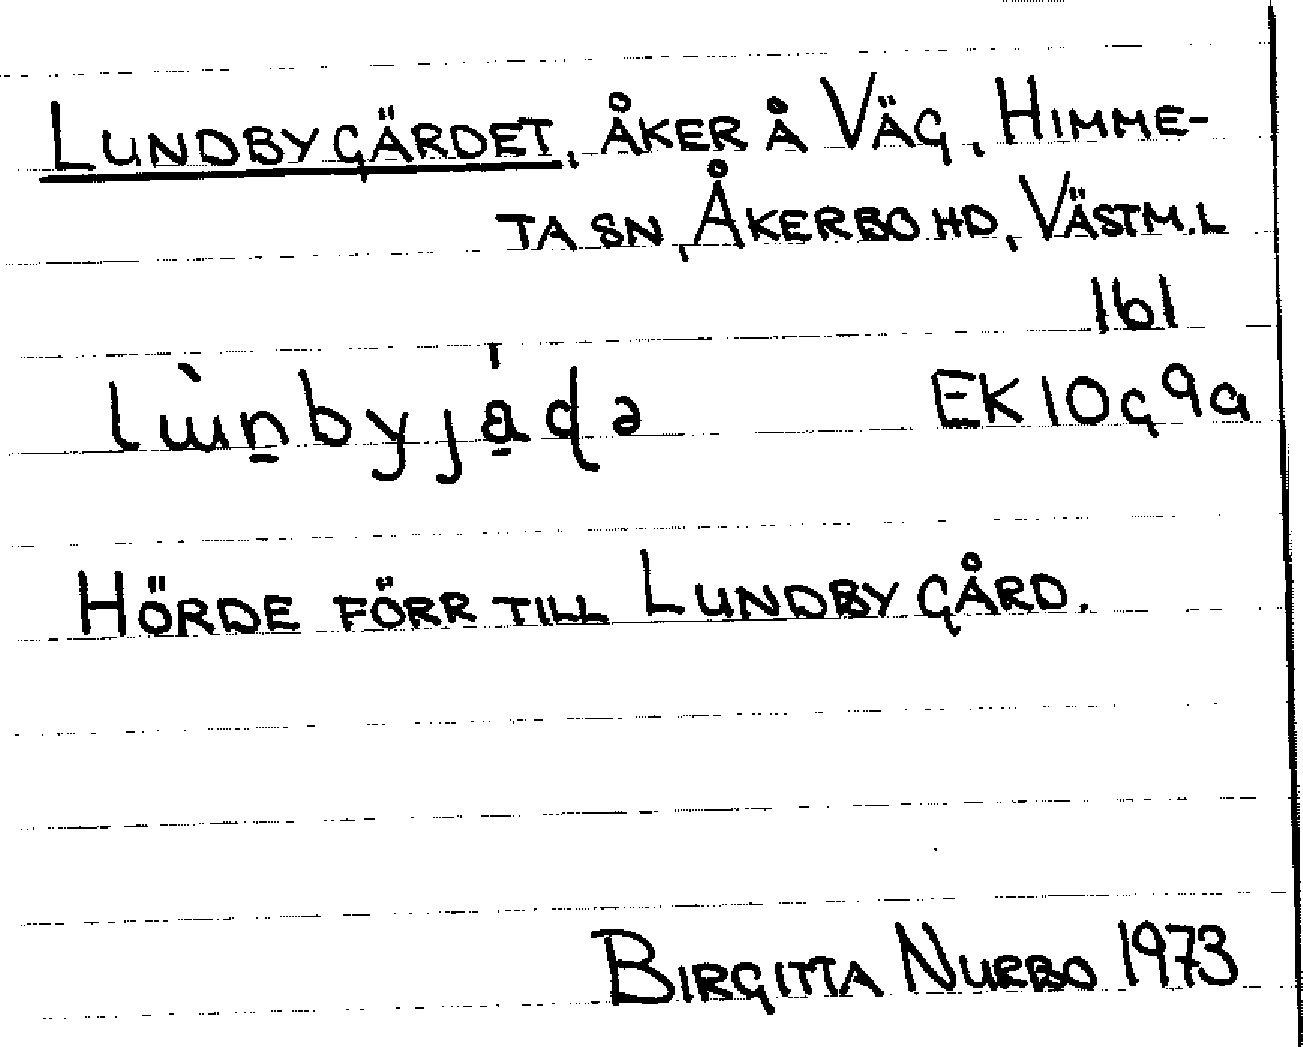 LUNDBYGÄRDET, ÅKER Å VÄG, HIMME-
TA SN, ÅKERBO HD, VÄSTM.L
161
EK 10g9a
HÖRDE FÖRR TILL LUNDBY GÅRD.
BIRGITTA NURBO 1973